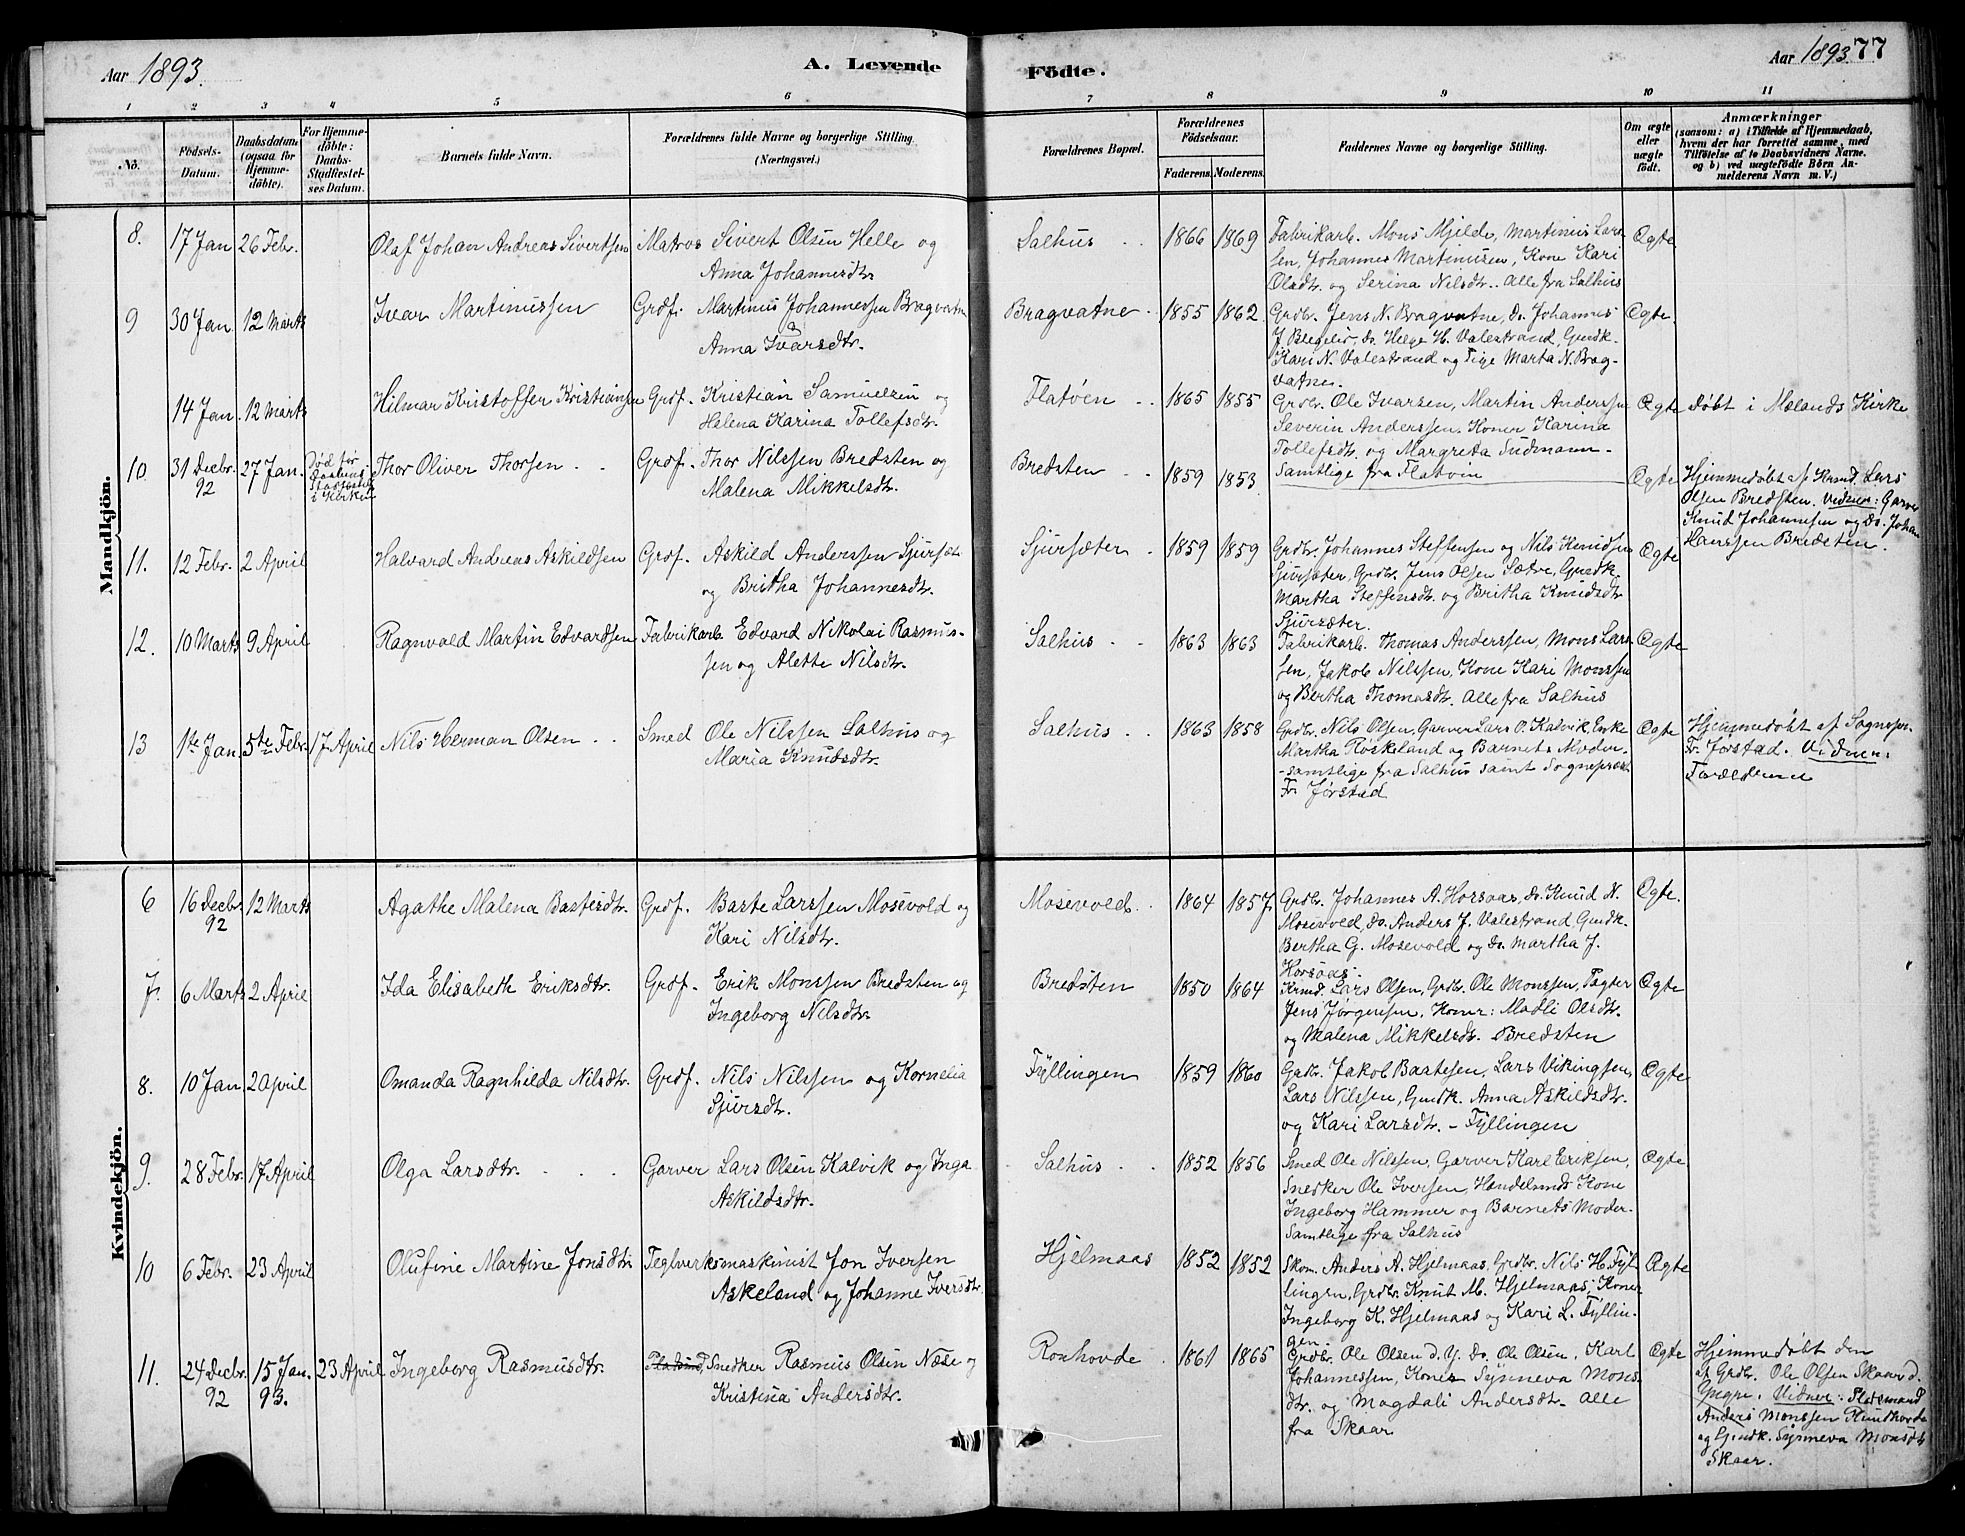 Aar 1893.
A. Levende Födte.
Aar 1893. 77
1 2 3 4 5 6 7 8 9 10 11
No.
Födsels-Datum.
Daabsdatum (ogsaa for Hjemmedöbte).
For Hjemmedöbte: Daabs-Stadfæstelses Datum.
Barnets fulde Navn.
Forældrenes fulde Navne og borgerlige Stilling. (Næringsvei.)
Forældrenes Bopæl.
Forældrenes Födselsaar. Faderens. Moderens.
Faddernes Navne og borgerlige Stilling.
Om ægte eller uægte födt.
Anmærkninger (saasom: a) i Tilfælde af Hjemmedaab, hvem der har forrettet samme, med Tilföielse af to Daabsvidners Navne. og b) ved uægtefödte Börn Anmelderens Navn m. V.)
Mandkjön.
8. 17 Jan 26 Febr. Olaf Johan Andreas Sivertsen Matros Sivert Olsen Helle og
Anna Johannesdtr.
Salhus 1866 1869 Fabrikarb. Mons Mjelde, Martinus Lars-
sen, Johannes Martinusen, Kone Kari
Olsdtr. og Serina Nilsdtr.. Alle fra Salhus
Ægte
9 30 Jan 12 Marts Ivar Martinussen Grdf. Martinus Johannessen Bragvatne
& Anna Ivarsdtr.
Bragvatne 1855 1862 Grdbr. Jens N. Bragvatne, Do. Johannes
J. , Do. Helge H. Valestrand, Gmdk.
Kari N. Valestrand og Pige Marta N. Brag-
vatne.
Ægte.
14 Jan 12 Marts Hilmar Kristoffer Kristiansen Grdf. Kristian Samuelsen og
Helena Karina Tollefsdtr.
Flatöen 1865 1855 Grdbr. Ole Ivarsen, Martin Anderssen
Severin Anderssen, Koner Karina
Tollefsdtr. og Margreta Sudmann -
Samtlige fra Flatöen
Ægte Döbt i Mælands Kirke
10 31 Decbr. 92 27 Jan. Död för Daabens Stadfæstelse i Kirken Thor Oliver Thorsen Grdf. Thor Nilssen Bredsten og
Malena Mikkelsdtr.
Bredsten 1859 1853 Ægte Hjemmedöbt af Krmd. Lars
Olsen Bredsten. Vidner: Garver
Knud Johannesen og Do. Johan
Hanssen Bredsten.
11. 12 Febr. 2 April Halvard Andreas Askildsen Grdf. Askild Anderssen Sjursæt.
og Britha Johannesdtr.
Sjursæter 1859 1859 Grdbr. Johannes Steffensen og Nils Knudsen
Sjursæter, Grdbr. Jens Olsen Sætre, Gmdk.
Martha Steffensdtr. og Britha Knudsdtr
Sjursæter.
Ægte
12. 10 Marts 9 April Ragnvald Martin Edvardsen Fabrikarb. Edvard Nikolai Rasmus-
sen og Alette Nilsdtr.
Salhus 1863 1863 Fabrikarb. Thomas Anderssen, Mons Lars-
sen, Jakob Nilssen, Kone Kari Monssen
og Bertha Thomasdtr. Alle fra Salhus
Ægte
13 1ste Jan 5te Febr. 17 April Nils Herman Olsen Smed Ole Nilssen Salhus og
Maria Knudsdtr.
Salhus 1863 1858 Grdbr. Nils Olsen, Garver Lars O. Kalvik, Enke
Martha Röskeland og Barnets Moder-
-samtlige fra Salhus samt Sognepræst
Fr. Jörstad
Ægte Hjemmedöbt af Sognepr.
Fr. Jörstad. Vidner:
Forældrene
Kvindekjön.
6 16 Decbr. 92 12 Marts Agathe Malena Bastesdtr. Grdf. Baste Larssen Mosevold og
Kari Nilsdtr.
Mosevold. 1864 1857. Grdbr. Johannes A. Horsaas, Do. Knud N.
Mosevold, Do. Anders J. Valestrand Gmdk.
Bertha G. Mosevold og Do. Martha J.
Horsaas.
Ægte.
7. 6 Marts 2 April Ida Elisabeth Eriksdtr. Grdf. Erik Monssen Bredsten og
Ingeborg Nilsdtr.
Bredsten 1850 1864 Krmd. Lars Olsen, Grdbr. Ole Monssen, Pagter
Jens Jörgensen, Koner: Madli Olsdtr.
og Malena Mikkelsdtr. Bredsten
Ægte
8. 10 Jan 2 April Omanda Ragnhilda Nilsdtr. Grdf. Nils Nilssen og Kornelia
Sjursdtr.
Fyllingen 1859 1860 Grdbr. Jakob Baatesen, Lars Vikingsen,
Lars Nilssen, Gmdk. Anna Askildsdtr.
og Kari Larsdtr. - Fyllingen
Ægte
9. 28 Febr. 17 April Olga Larsdtr. Garver Lars Olsen Kalvik og Inga
Askildsdtr.
Salhus 1852 1856 Smed Ole Nilssen, Garver Karl Eriksen,
Snedker Ole Iversen, Handelsmds Kone
Ingeborg Hammer og Barnets Moder.
Samtlige fra Salhus
Ægte
10 6 Febr. 23 April Olufine Martine Jonsdtr. Teglverksmaskinist Jon Iversen
Askeland og Johanne Iversdtr.
Hjelmaas 1852 1852 Skom. Anders A. Hjelmaas, Grdbr. Nils H. Fyl-
lingen, Grdbr. Knut M. Hjelmaas, Koner
Ingeborg K. Hjelmaas og Kari L. Fyllin-
gen
Ægte
11. 24 Decbr. 92 15 Jan. 93. 23 April Ingeborg Rasmusdtr. Pladsmd, Snedker Rasmus Olsen Næse og
Kristina Andersdtr.
Roxhovde 1861 1865 Grdbr. Ole Olsen d. Y. Do. Ole Olsen, Karl
Johannessen, Koner Synneva Mons-
dtr. og Magdali Andersdtr. Alle
fra Skaar.
Ægte Hjemmedöbt den
af Grdbr. Ole Olsen Skaar d.
Yngre. Vidner: Pladsmand
Anders Monssen
og Gmdk. Synneva Monsdtr
Skaar.